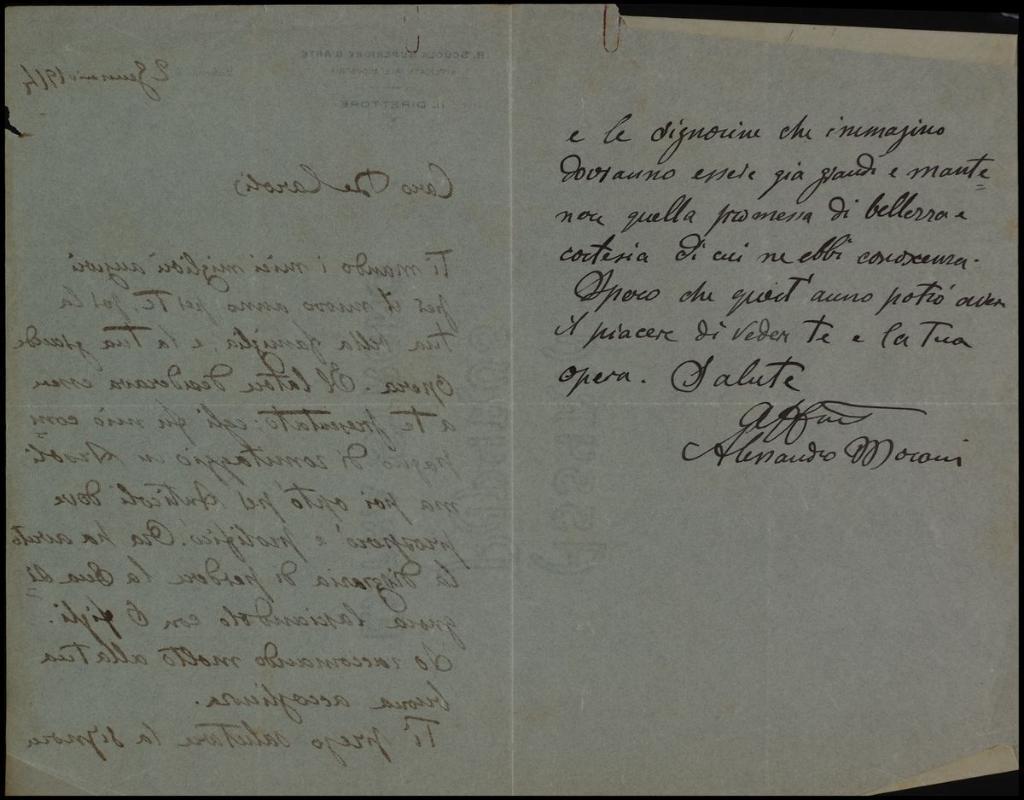 IL DIRETTORE
2 Gennaio 1914
Caro De Carolis
Ti mando i miei migliori auguri
per il nuovo anno per te, per la
tua bella famiglia, e la tua grande
opera. Il latore desiderava essere
a te presentato: egli fu mio com=
pagno di romitaggio in
ma poi optò per Anticoli dove
prosperò e prolificò. Ora ha avuto
la disgrazia di perdere la sua Si=
gnora lasciandolo con 6 figli.
Lo raccomando molto alla tua
buona accoglienza.
Ti prego salutare la signora
e le signorine che immagino
dovranno essere già grandi e mante=
nere quella promessa di bellezza e
cortesia di cui ne ebbi conoscenza.
Spero che quest'anno potrò avere
il piacere di veder te e la tua
opera. Salute
aff.mo
Alessandro Morani